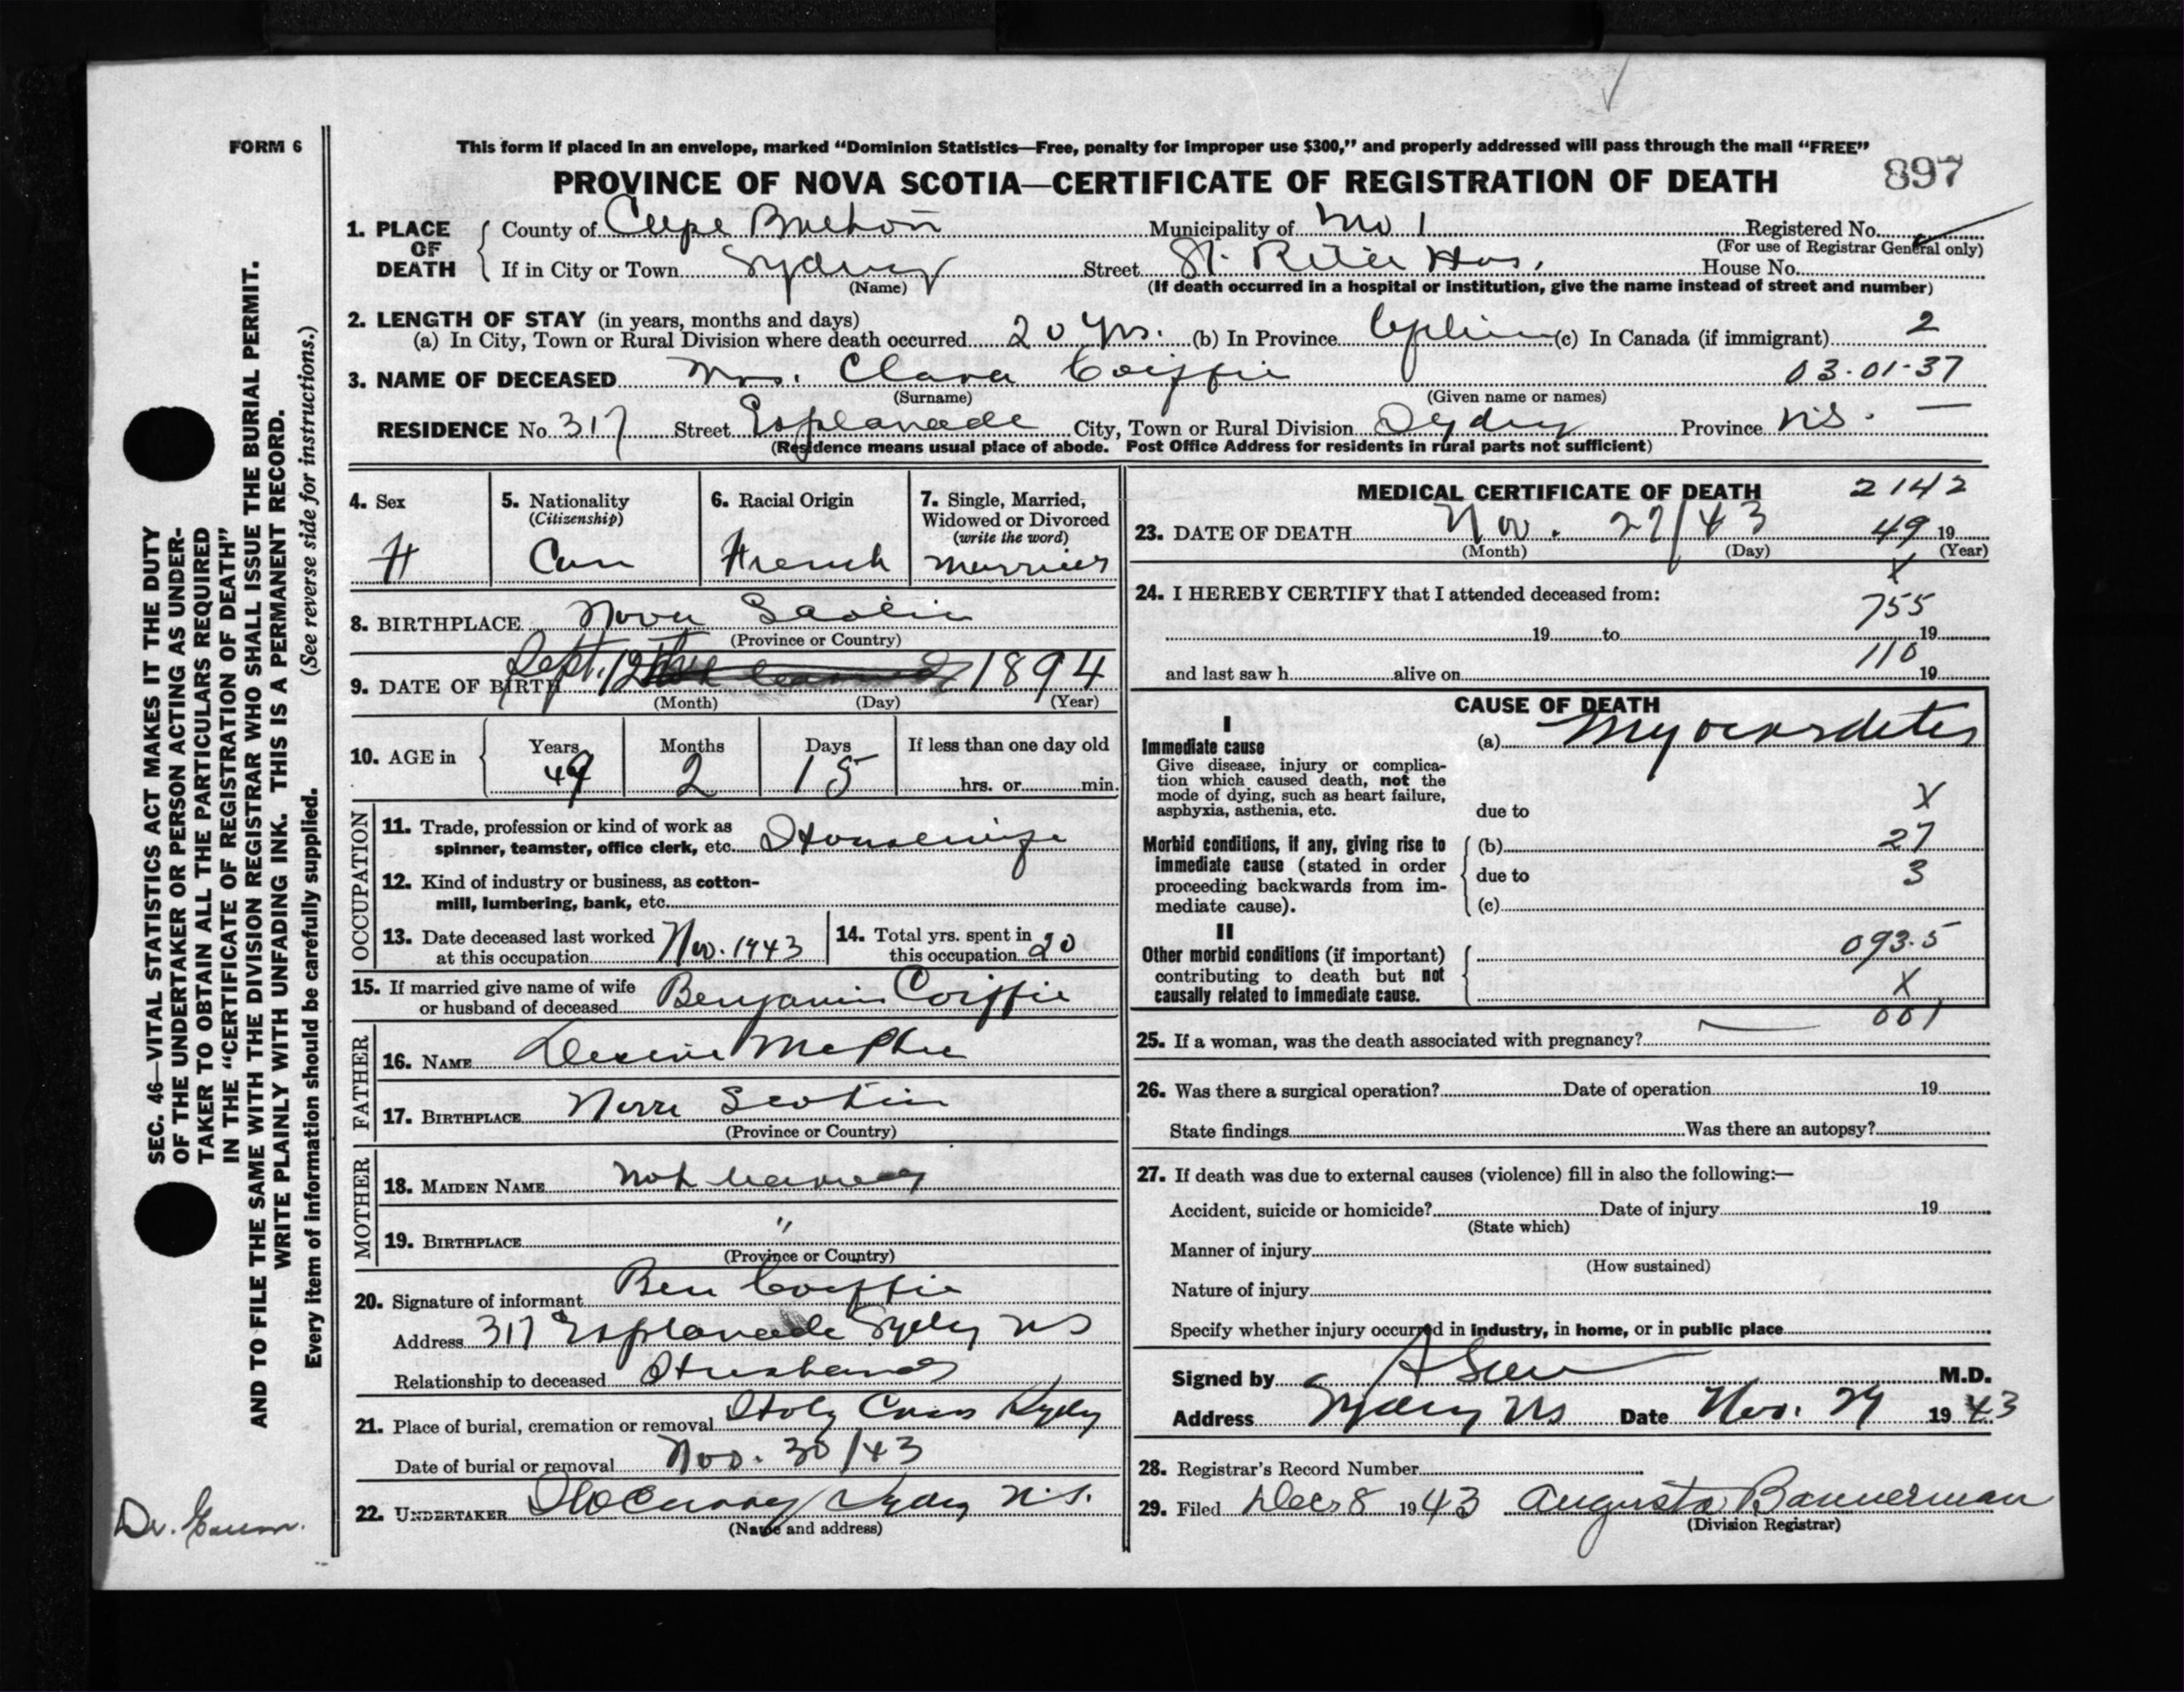 FORM 6
This form if placed in an envelope, marked “Dominion Statistics—Free, penalty for improper use $300,” and properly addressed will pass through the mail “FREE”
PROVINCE OF NOVA SCOTIA—CERTIFICATE OF REGISTRATION OF DEATH 897
1. PLACE OF DEATH County of Cape Breton Municipality of No 1 Registered No.
(For use of Registrar General only)
If in City or Town Sydney Street St. Rita Hos. House No.
(Name) (If death occurred in a hospital or institution, give the name instead of street and number)
2. LENGTH OF STAY (in years, months and days)
(a) In City, Town or Rural Division where death occurred 20 yrs. (b) In Province (c) In Canada (if immigrant) 2
3. NAME OF DECEASED Mrs. Clara Coiffie 03-01-37
(Surname) (Given name or names)
RESIDENCE No. 317 Street Esplanade City, Town or Rural Division Sydney Province N.S. —
(Residence means usual place of abode. Post Office Address for residents in rural parts not sufficient)
4. Sex 5. Nationality 6. Racial Origin 7. Single, Married,
(Citizenship) Widowed or Divorced
(write the word)
F Can French Married
8. BIRTHPLACE Nova Scotia
(Province or Country)
9. DATE OF BIRTH Sept. 12 1894
(Month) (Day) (Year)
10. AGE in Years Months Days If less than one day old
49 2 15 hrs. or min.
OCCUPATION
11. Trade, profession or kind of work as
spinner, teamster, office clerk, etc. Housewife
12. Kind of industry or business, as cotton-
mill, lumbering, bank, etc.
13. Date deceased last worked 14. Total yrs. spent in
at this occupation Nov. 1943 this occupation 20
15. If married give name of wife
or husband of deceased Benjamin Coiffie
FATHER
16. NAME McPhee
17. BIRTHPLACE Nova Scotia
(Province or Country)
MOTHER
18. MAIDEN NAME Not learned
19. BIRTHPLACE "
(Province or Country)
20. Signature of informant Ben Coiffie
Address 317 Esplanade Sydney NS
Relationship to deceased Husband
21. Place of burial, cremation or removal Holy Cross Sydney
Date of burial or removal Nov. 30/43
22. UNDERTAKER Sydney N.S.
(Name and address)
MEDICAL CERTIFICATE OF DEATH 2142
23. DATE OF DEATH Nov. 27/43 49 19
(Month) (Day) (Year)
X
24. I HEREBY CERTIFY that I attended deceased from:
755
19 to 19
110
and last saw h alive on 19
CAUSE OF DEATH
I
Immediate cause (a) Myocarditis
Give disease, injury or complica-
tion which caused death, not the
mode of dying, such as heart failure,
asphyxia, asthenia, etc. due to X
Morbid conditions, if any, giving rise to (b) 27
immediate cause (stated in order
proceeding backwards from im- due to 3
mediate cause). (c)
II
Other morbid conditions (if important) 093.5
contributing to death but not
causally related to immediate cause. X
001
25. If a woman, was the death associated with pregnancy?
26. Was there a surgical operation? Date of operation 19
State findings Was there an autopsy?
27. If death was due to external causes (violence) fill in also the following:—
Accident, suicide or homicide? Date of injury 19
(State which)
Manner of injury
(How sustained)
Nature of injury
Specify whether injury occurred in industry, in home, or in public place
Signed by M.D.
Address Sydney NS Date Nov. 29 1943
28. Registrar’s Record Number
29. Filed Dec 8 1943 Augusta Bannerman
(Division Registrar)
SEC. 46—VITAL STATISTICS ACT MAKES IT THE DUTY
OF THE UNDERTAKER OR PERSON ACTING AS UNDER-
TAKER TO OBTAIN ALL THE PARTICULARS REQUIRED
IN THE “CERTIFICATE OF REGISTRATION OF DEATH”
AND TO FILE THE SAME WITH THE DIVISION REGISTRAR WHO SHALL ISSUE THE BURIAL PERMIT.
WRITE PLAINLY WITH UNFADING INK. THIS IS A PERMANENT RECORD.
Every item of information should be carefully supplied. (See reverse side for instructions.)
Dr.